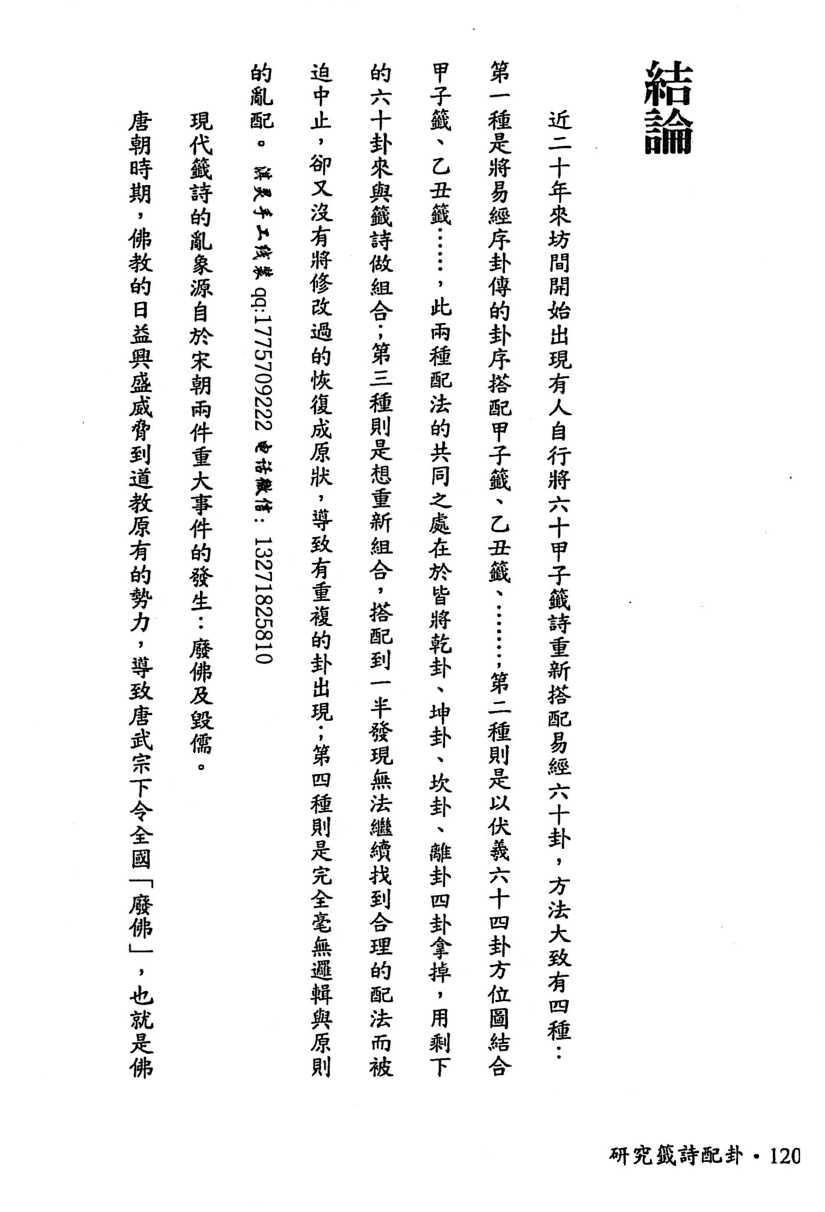 結論
近二十年來坊間開始出現有人自行將六十甲子籤詩重新搭配易經六十卦，方法大致有四種：
第一種是將易經序卦傳的卦序搭配甲子籤、乙丑籤、………；第二種則是以伏羲六十四卦方位圖結合
甲子籤、乙丑籤……，此兩種配法的共同之處在於皆將乾卦、坤卦、坎卦、離卦四卦拿掉，用剩下
的六十卦來與籤詩做組合；第三種則是想重新組合，搭配到一半發現無法繼續找到合理的配法而被
迫中止，卻又沒有將修改過的恢復成原狀，導致有重複的卦出現；第四種則是完全毫無邏輯與原則
的亂配。 淇灵手工线装 qq:1775709222 电话微信： 13271825810
現代籤詩的亂象源自於宋朝兩件重大事件的發生：廢佛及毀儒。
唐朝時期，佛教的日益興盛威脅到道教原有的勢力，導致唐武宗下令全國「廢佛」，也就是佛
研究籤詩配卦・120